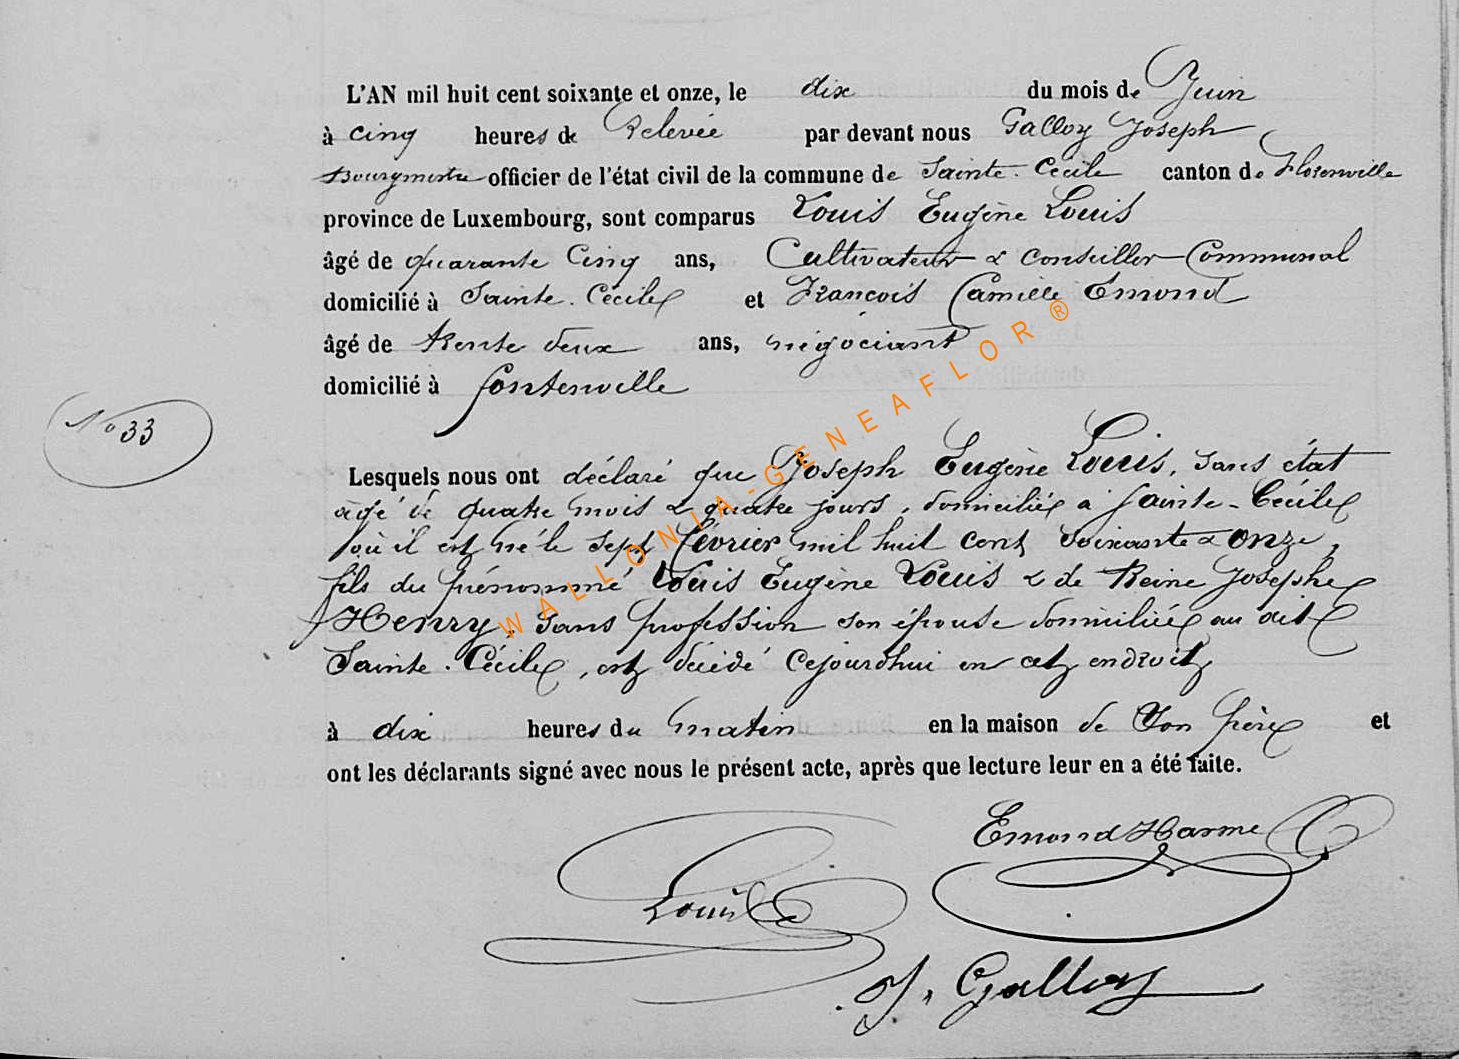 L'AN mil huit cent soixante et onze, le dix du mois de Juin
à cinq heures de Relevée par devant nous Galloy Joseph
Bourgmestre officier de l'état civil de la commune de Sainte-Cécile canton de Florenville
province de Luxembourg, sont comparus Louis Eugène Louis
âgé de quarante Cinq ans, Cultivateur & Conseiller Communal
domicilié à Sainte-Cécile et François Camille Emond
âgé de trente deux ans, négociant
domicilié à fontenoille
N° 33
Lesquels nous ont déclaré que Joseph Eugène Louis, sans état
âgé de quatre mois & quatre jours, domicilié à Sainte-Cécile
où il est né le sept février mil huit cent soixante & onze,
fils du prénommé Louis Eugène Louis & de Reine Josephe
Henry, sans profession son épouse domiciliée au dit
Sainte-Cécile, est décédé cejourd'hui en cet endroit
à dix heures du matin en la maison de Son père et
ont les déclarants signé avec nous le présent acte, après que lecture leur en a été faite.
Emond Harme
Louis
J. Galloy
WALLONIA-GENEAFLOR ®